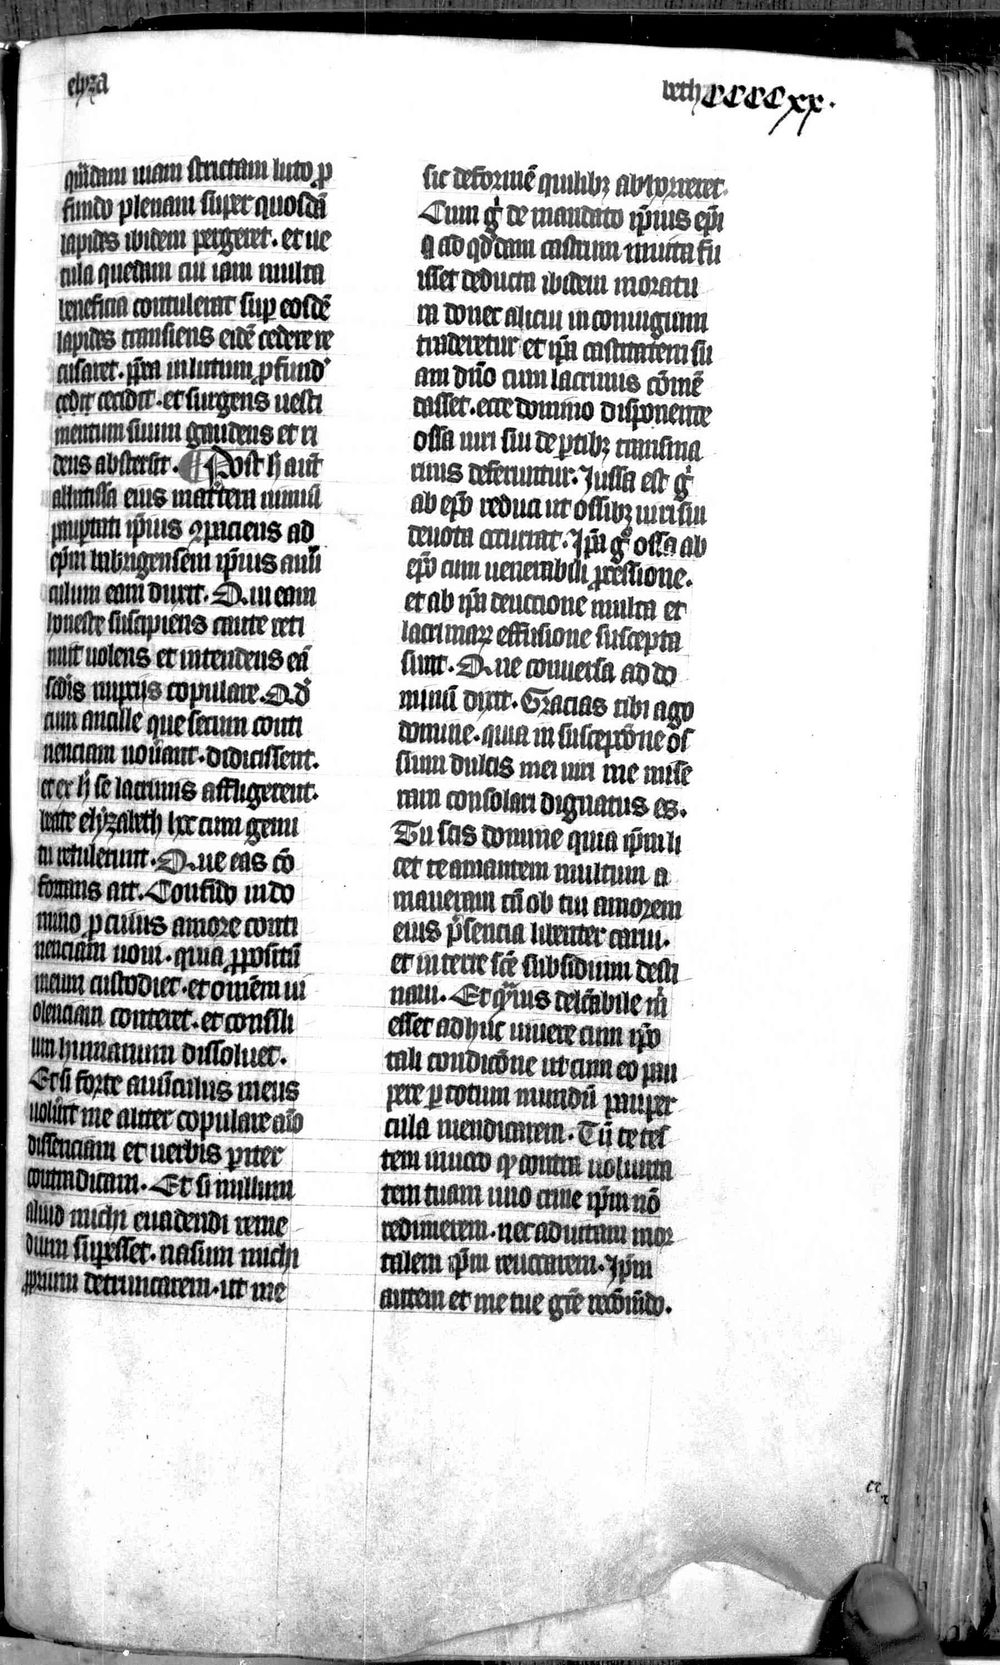 elyza
beth CCCCxx.
quādam uiam strictam luto p
fundo plenam super quosdā
lapides ibidem pergeret. et ue
tula quedam cui iam multa
beneficia contulerat sup eosdē
lapides transiens eidē cedere re
cusaret. ip̄a in lutum p fundū
cecidit. et surgens uesti
mentum suum gaudens et ri
dens abstersit. Post h̄ aut̄
abbatissa eius matertera nimiū
paupertati ip̄ius 9paciens ad
ep̄m babingensem ip̄ius auū
culum eam duxit. Qui eam
honeste suscipiens caute reti
nuit uolens et intendens eā
scd̄is nuptijs copulare. Qd̄
cum ancille que secum conti
nenciam uouerant. didicissent.
et ex h̄ se lacrimis affligerent.
beate elyzabeth hec cum gemi
tu retulerunt. Que eas cō
fortans ait. Confido in do
mino p cuius amore conti
nenciam uoui. quia ppositū
meum custodiet. et omēm ui
olenciam conteret. et consili
um humanum dissoluet.
Et si forte auūculus meus
uoluerit me aliter copulare aīo
dissenciam et uerbis pariter
contradicam. Et si nullum
aliud michi euadendi reme
dium supesset. nasum michi
pprium detruncarem. ut me
sic deformē quilibz abhorreret.
Cum g° de mandato ip̄ius ep̄i
ad qd̄dam castrum inuita fu
isset deducta ibidem moratu
ra donec alicui in coniugium
traderetur et ip̄a castitatem su
am dn̄o cum lacrimis cōmē
dasset. ecce domino disponente
ossa uiri sui de ptibz transma
rinis deferuntur. Jussa est g°
ab ep̄o reduci ut ossibz uiri sui
deuota occurrat. Ip̄a g° ossa ab
ep̄o cum uenerabili pcessione.
et ab ip̄a deuocione multa et
lacrimarz effusione suscepta
sunt. Que conuersa ad do
minū dixit. Gracias tibi ago
domine. quia in suscepcōne os
sium dulcis mei uiri me mise
ram consolari dignatus es.
Tu scis domine quia ip̄m li
cet te amantem multum a
maueram tn̄ ob tui amorem
eius p̄sencia libenter carui.
et in terre scē subsidium desti
naui. Et quāuis delcābile m̄
esset adhuc uiuere cum ip̄o
tali condicōne ut cum eo pau
pere p totum mundū pauper
cula mendicarem. Tn̄ te tes
tem inuoco qp contra uolunta
tem tuam uno crine ip̄m nō
redimerem. nec ad uitam mor
talem ip̄m reuocarem. Ip̄m
autem et me tue gr̄e recōm̄do.